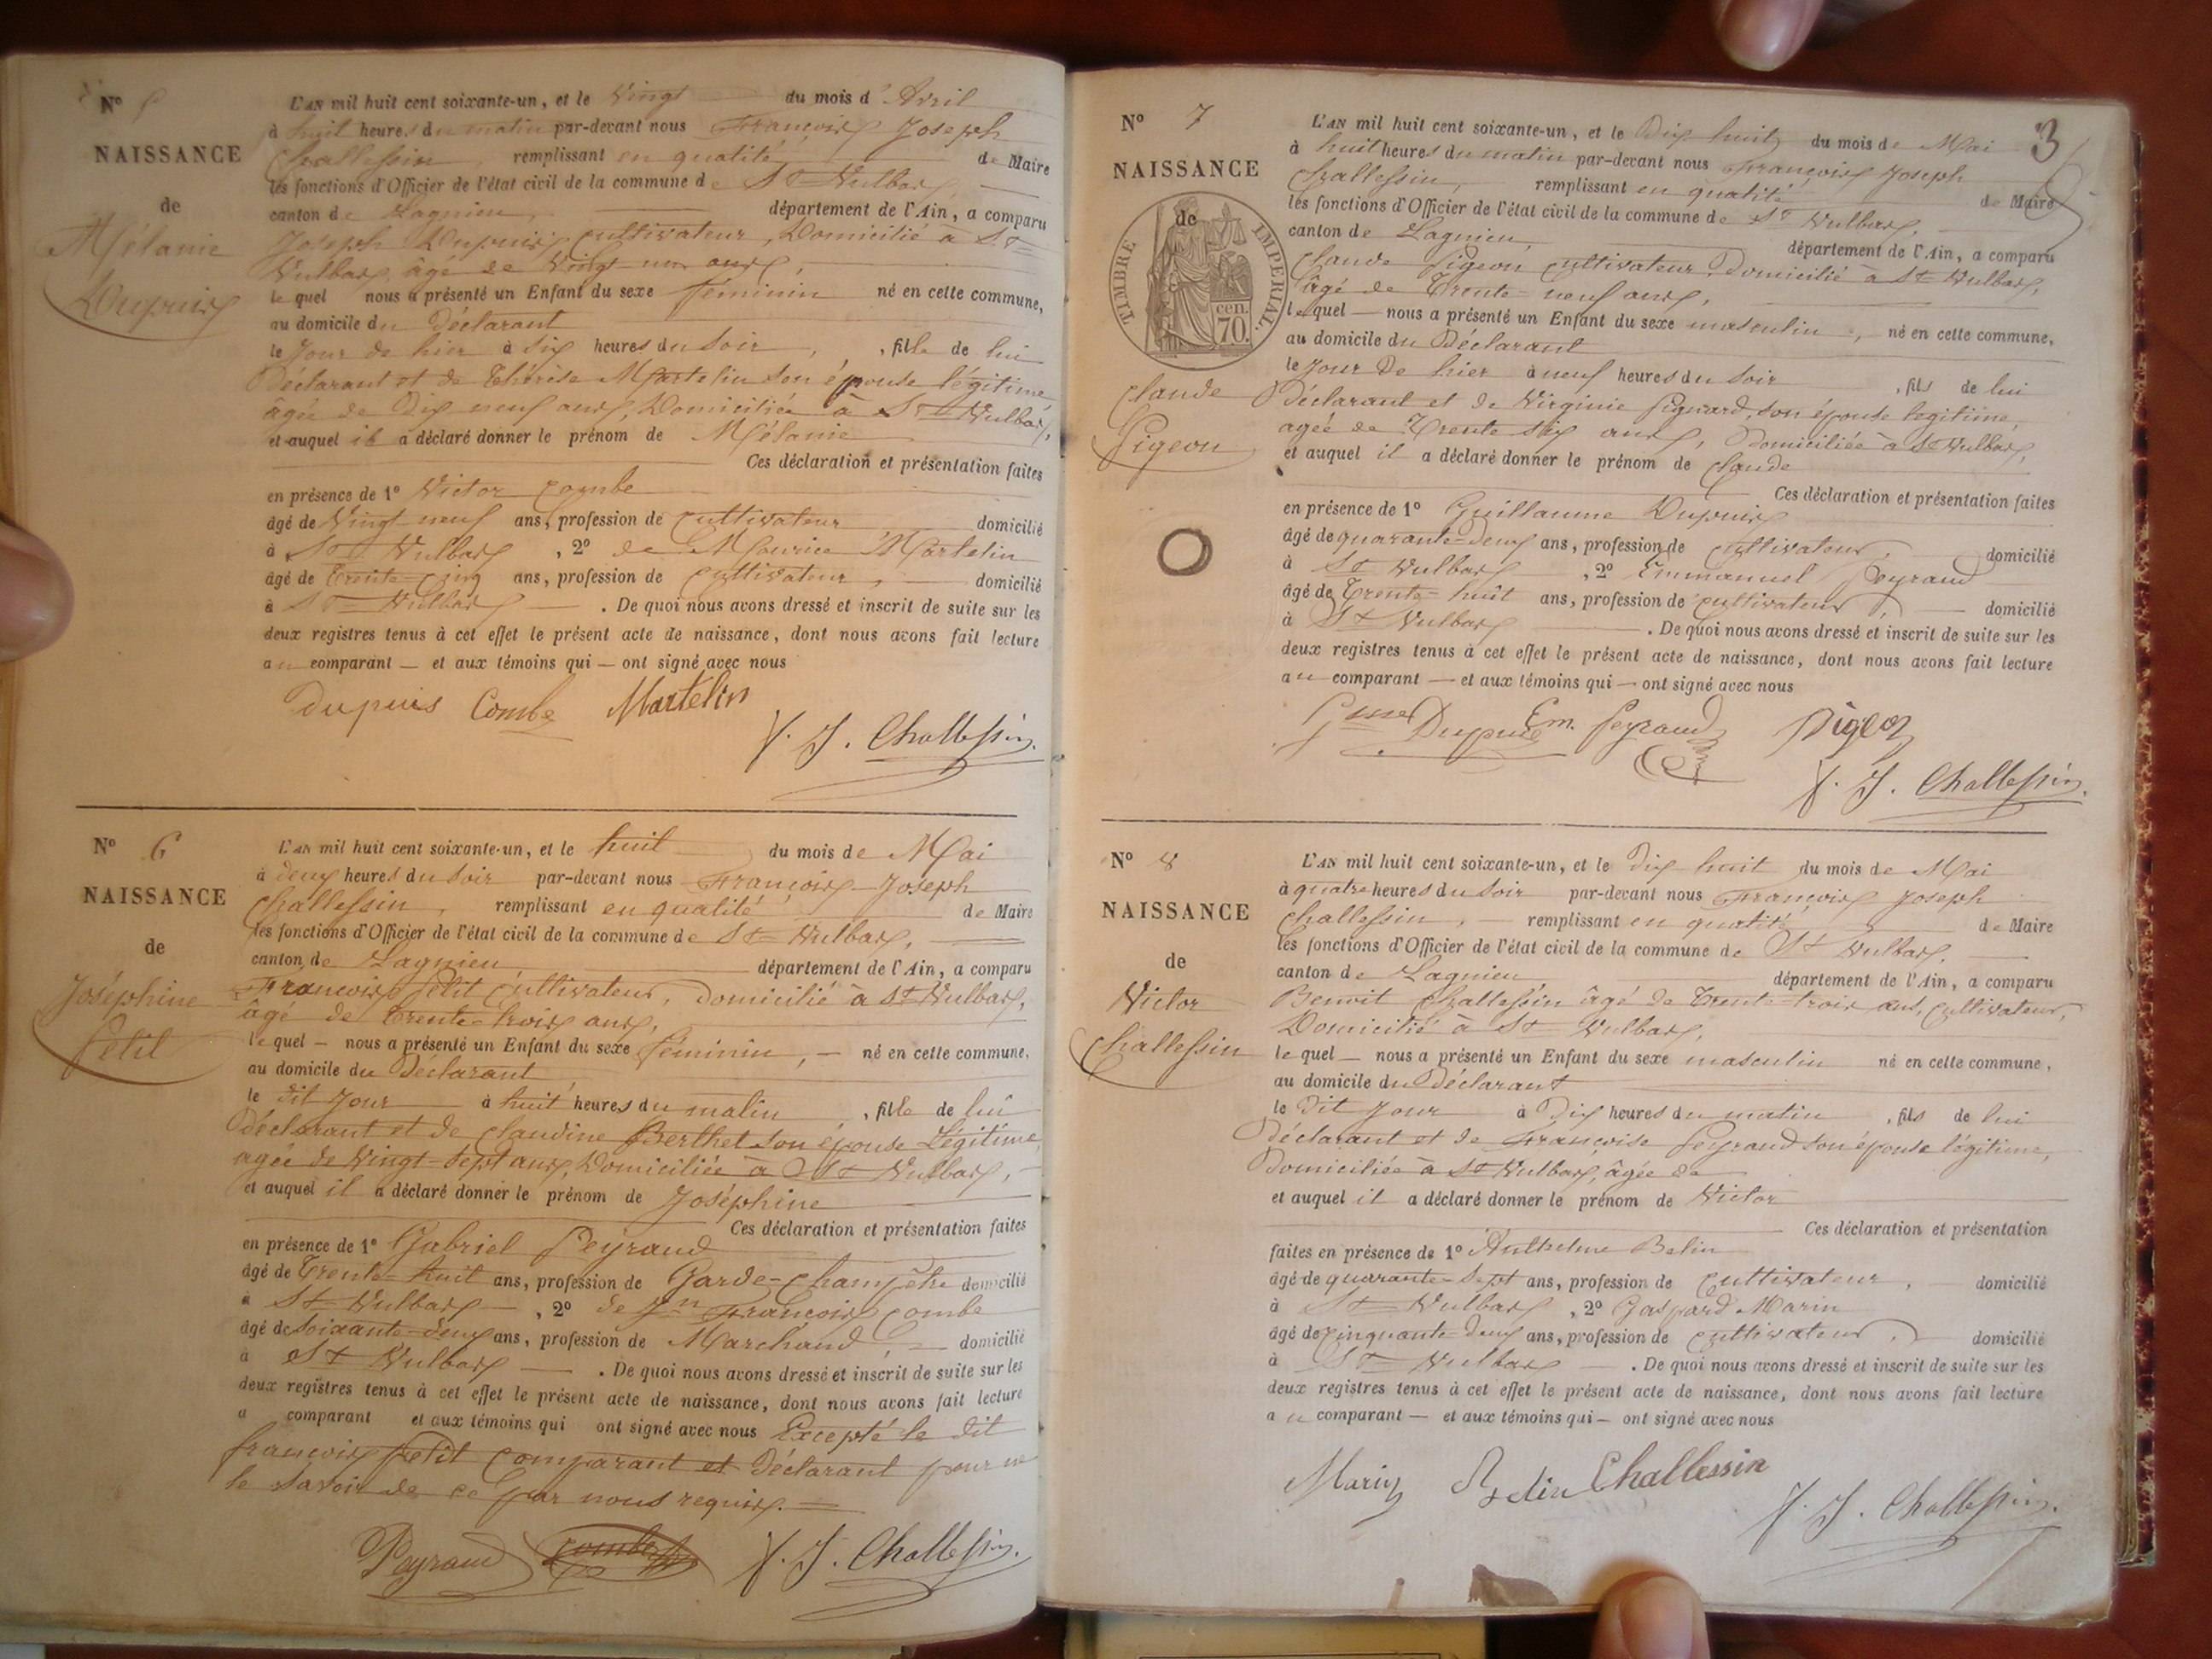 N° 5
NAISSANCE
de
Mélanie
Dupuis
L'AN mil huit cent soixante-un, et le Vingt du mois d'Avril
à huit heures du matin par-devant nous François Joseph
Challessin, remplissant en qualité de Maire
les fonctions d'Officier de l'état civil de la commune de St Vulbas,
canton de Lagnieu, département de l'Ain, a comparu
Joseph Dupuis, cultivateur, Domicilié à St
Vulbas, âgé de Vingt-un ans,
lequel nous a présenté un Enfant du sexe féminin né en cette commune,
au domicile du Déclarant
le Jour de hier à six heures du soir, fille de lui
Déclarant et de Thérèse Martelin son épouse légitime
âgée de Dix neuf ans, Domiciliée à St Vulbas,
et auquel il a déclaré donner le prénom de Mélanie
Ces déclaration et présentation faites
en présence de 1° Victor Combe
âgé de Vingt-neuf ans, profession de cultivateur domicilié
à St Vulbas, 2° de Maurice Martelin
âgé de Trente-cinq ans, profession de cultivateur, domicilié
à St Vulbas. De quoi nous avons dressé et inscrit de suite sur les
deux registres tenus à cet effet le présent acte de naissance, dont nous avons fait lecture
au comparant — et aux témoins qui — ont signé avec nous
Dupuis Combe Martelin
f. J. Challessin.
N° 6
NAISSANCE
de
Joséphine
Petit
L'AN mil huit cent soixante-un, et le huit du mois de Mai
à deux heures du soir par-devant nous François Joseph
Challessin, remplissant en qualité de Maire
les fonctions d'Officier de l'état civil de la commune de St Vulbas,
canton de Lagnieu département de l'Ain, a comparu
François Petit cultivateur, domicilié à St Vulbas,
âgé de trente-trois ans,
lequel — nous a présenté un Enfant du sexe féminin, — né en cette commune,
au domicile du Déclarant
le dit Jour à huit heures du matin, fille de lui
Déclarant et de Claudine Berthet son épouse Légitime
âgée de Vingt-sept ans, Domiciliée à St Vulbas, —
et auquel il a déclaré donner le prénom de Joséphine
Ces déclaration et présentation faites
en présence de 1° Gabriel Peyraud
âgé de Trente-huit ans, profession de Garde-Champêtre domicilié
à St Vulbas —, 2° de Jn François Combe
âgé de soixante-deux ans, profession de Marchand, domicilié
à St Vulbas — . De quoi nous avons dressé et inscrit de suite sur les
deux registres tenus à cet effet le présent acte de naissance, dont nous avons fait lecture
a comparant et aux témoins qui ont signé avec nous Excepté le dit
françois Petit comparant et Déclarant pour ne
le savoir de ce par nous requis. =
Peyraud Combe f. J. Challessin.
3
N° 7
NAISSANCE
de
TIMBRE IMPERIAL.
70. cen.
Claude
Pigeon
L'AN mil huit cent soixante-un, et le Dix huit du mois de Mai
à huit heures du matin par-devant nous François Joseph
Challessin, remplissant en qualité de Maire
les fonctions d'Officier de l'état civil de la commune de St Vulbas,
canton de Lagnieu, département de l'Ain, a comparu
Claude Pigeon cultivateur, Domicilié à St Vulbas,
âgé de Trente-neuf ans,
lequel — nous a présenté un Enfant du sexe masculin, — né en cette commune,
au domicile du Déclarant
le Jour de hier à neuf heures du soir, fils de lui
Déclarant et de Virginie Pignard, son épouse légitime,
agée de Trente six ans, Domiciliée à St Vulbas,
et auquel il a déclaré donner le prénom de Claude
Ces déclaration et présentation faites
en présence de 1° Guillaume Dupuis
âgé de quarante-deux ans, profession de cultivateur, domicilié
à St Vulbas, 2° Emmanuel Peyraud
âgé de Trente-huit ans, profession de cultivateur, — domicilié
à St Vulbas — . De quoi nous avons dressé et inscrit de suite sur les
deux registres tenus à cet effet le présent acte de naissance, dont nous avons fait lecture
au comparant — et aux témoins qui — ont signé avec nous
Dupuis Em. Peyraud Pigeon
f. J. Challessin.
N° 8
NAISSANCE
de
Victor
Challessin
L'AN mil huit cent soixante-un, et le Dix huit du mois de Mai
à quatre heures du soir par-devant nous François Joseph
Challessin, — remplissant en qualité de Maire
les fonctions d'Officier de l'état civil de la commune de St Vulbas,
canton de Lagnieu département de l'Ain, a comparu
Benoit Challessin âgé de Trente-trois ans, cultivateur,
Domicilié à St Vulbas,
lequel — nous a présenté un Enfant du sexe masculin né en cette commune,
au domicile du Déclarant
le Dit Jour à Dix heures du matin, fils de lui
Déclarant et de Françoise Peyraud son épouse légitime,
Domiciliée à St Vulbas, âgée de
et auquel il a déclaré donner le prénom de Victor
Ces déclaration et présentation
faites en présence de 1° Anthelme Belin
âgé de quarante-sept ans, profession de cultivateur, domicilié
à St Vulbas, 2° Gaspard Marin
âgé de cinquante-deux ans, profession de cultivateur, domicilié
à St Vulbas — . De quoi nous avons dressé et inscrit de suite sur les
deux registres tenus à cet effet le présent acte de naissance, dont nous avons fait lecture
au comparant — et aux témoins qui — ont signé avec nous
Marin Belin Challessin
f. J. Challessin.